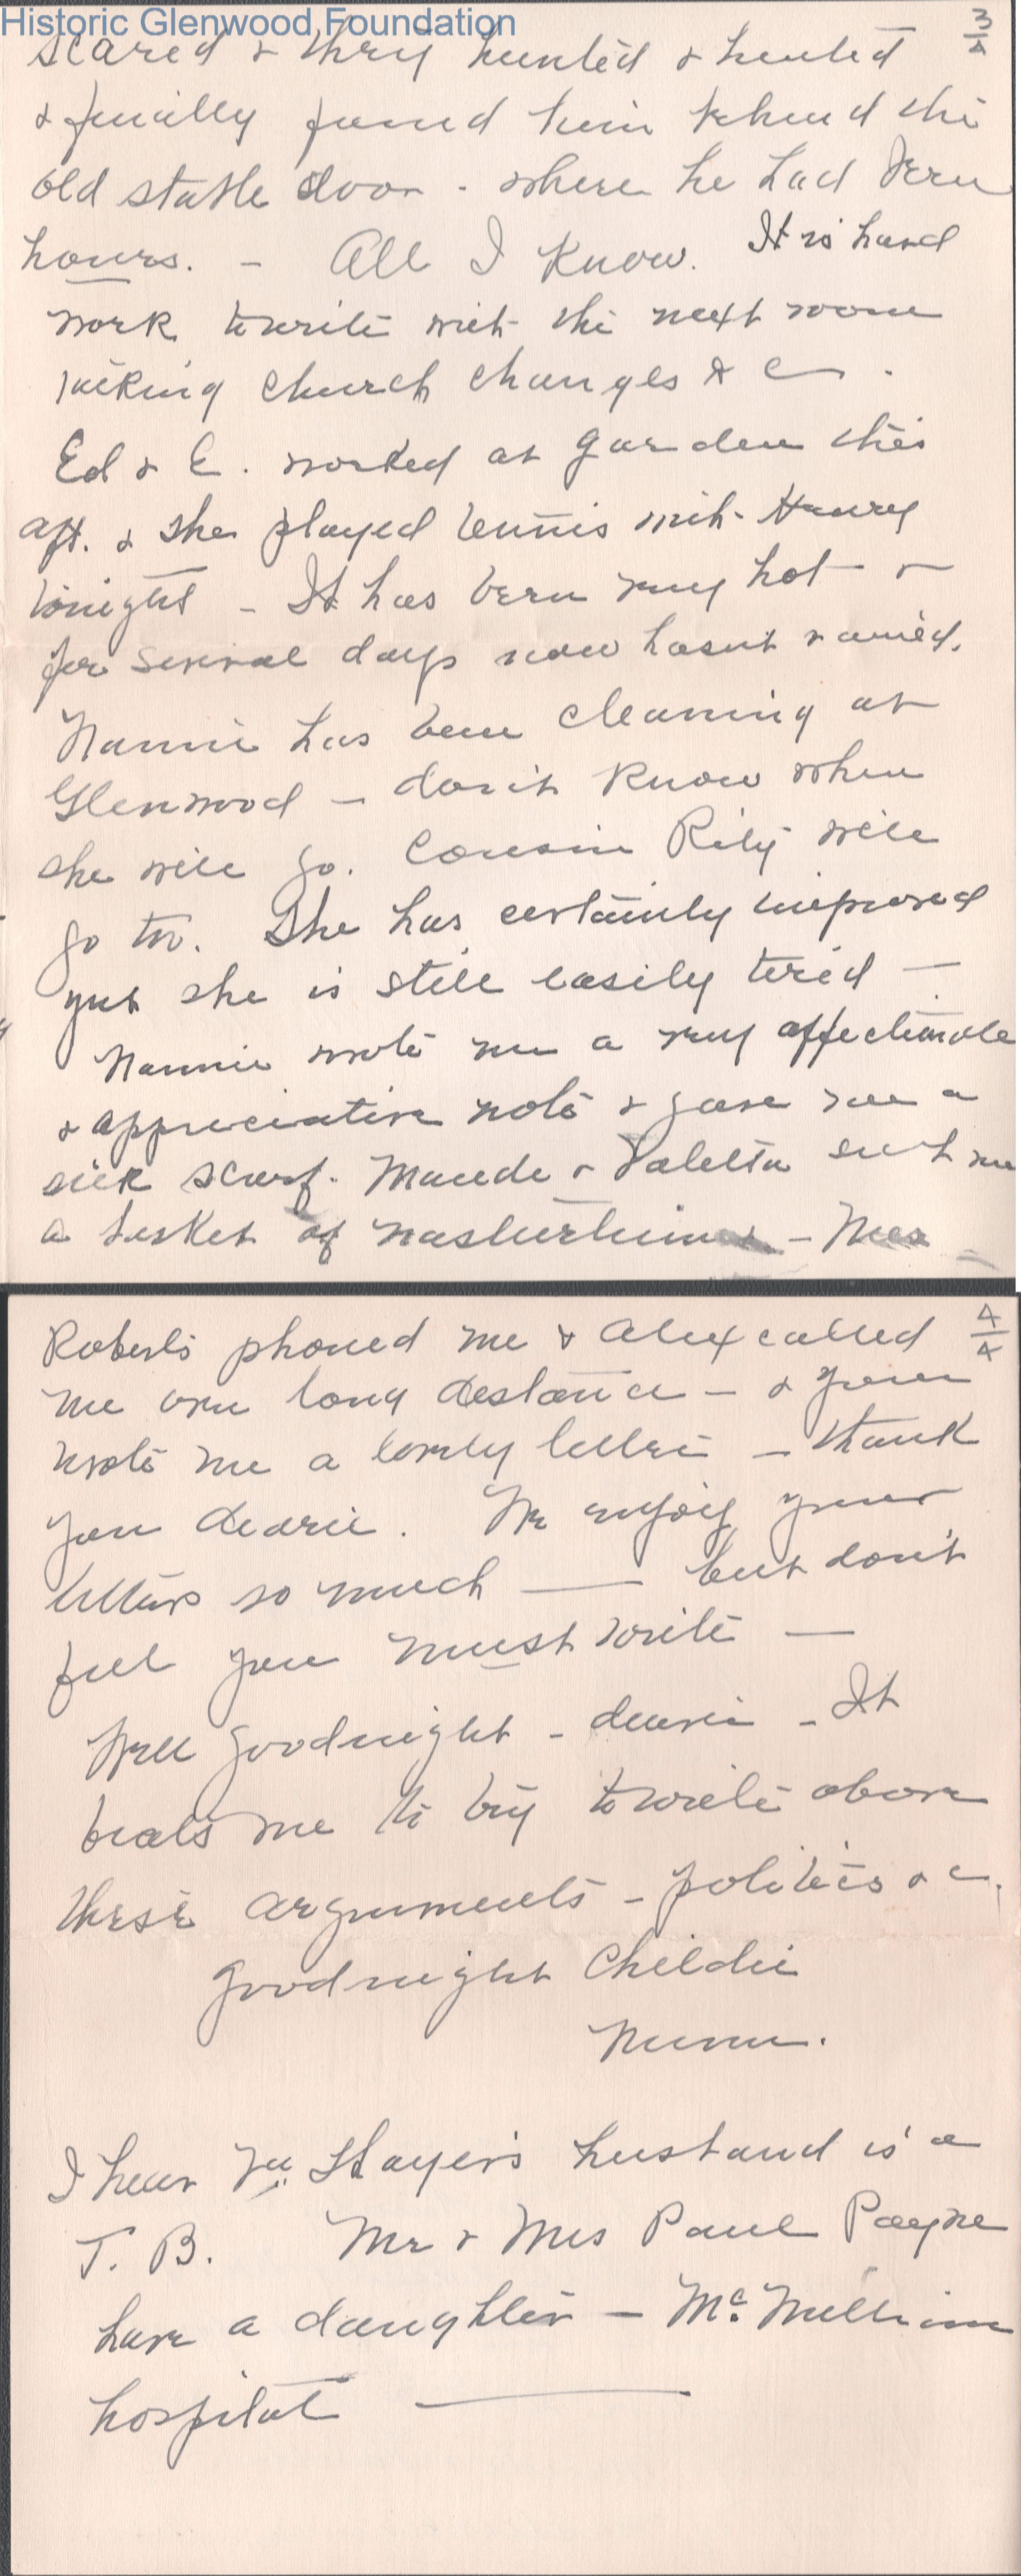 Historic Glenwood Foundation
3/4
scared & they hunted & hunted
& finally found him behind the
old stable door - where he had been
hours. - All I know. It is hard
work to write with the next room
talking church changes & c -.
Ed & E. worked at garden this
aft. & she played tennis with Henry
tonight - It has been very hot - &
for several days now hasnt rained.
Nannie has been cleaning at
Glenwood - don't know when
she will go. Cousin will
go too. She has certainly improved
yet she is still easily tired -
Nannie wrote me a very affectionate
& appreciative note & gave me a
silk scarf. Maude & sent me
a basket of nasturtiums - Mrs
4/4
Roberts phoned me & Alex called
me over long distance - & you
wrote me a lovely letter - thank
you dearie. We enjoy your
letters so much - but don't
feel you must write -
Well goodnight - dearie - It
beats me to try to write above
these arguments - politics & c.
Goodnight Childie
I hear Stayer's husband is a
T. B. Mr & Mrs Paul Payne
have a daughter - McMillian
hospital -